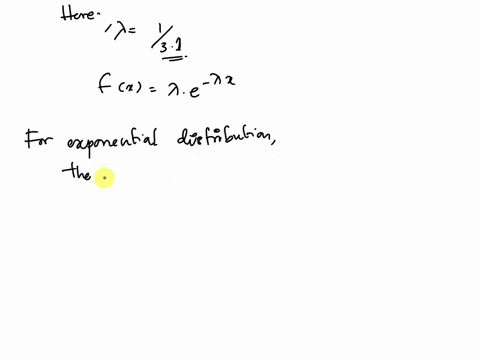 Here.
, λ = 1/3.1
f(x) = λ. e^{-λx}
For exponential distribution,
the